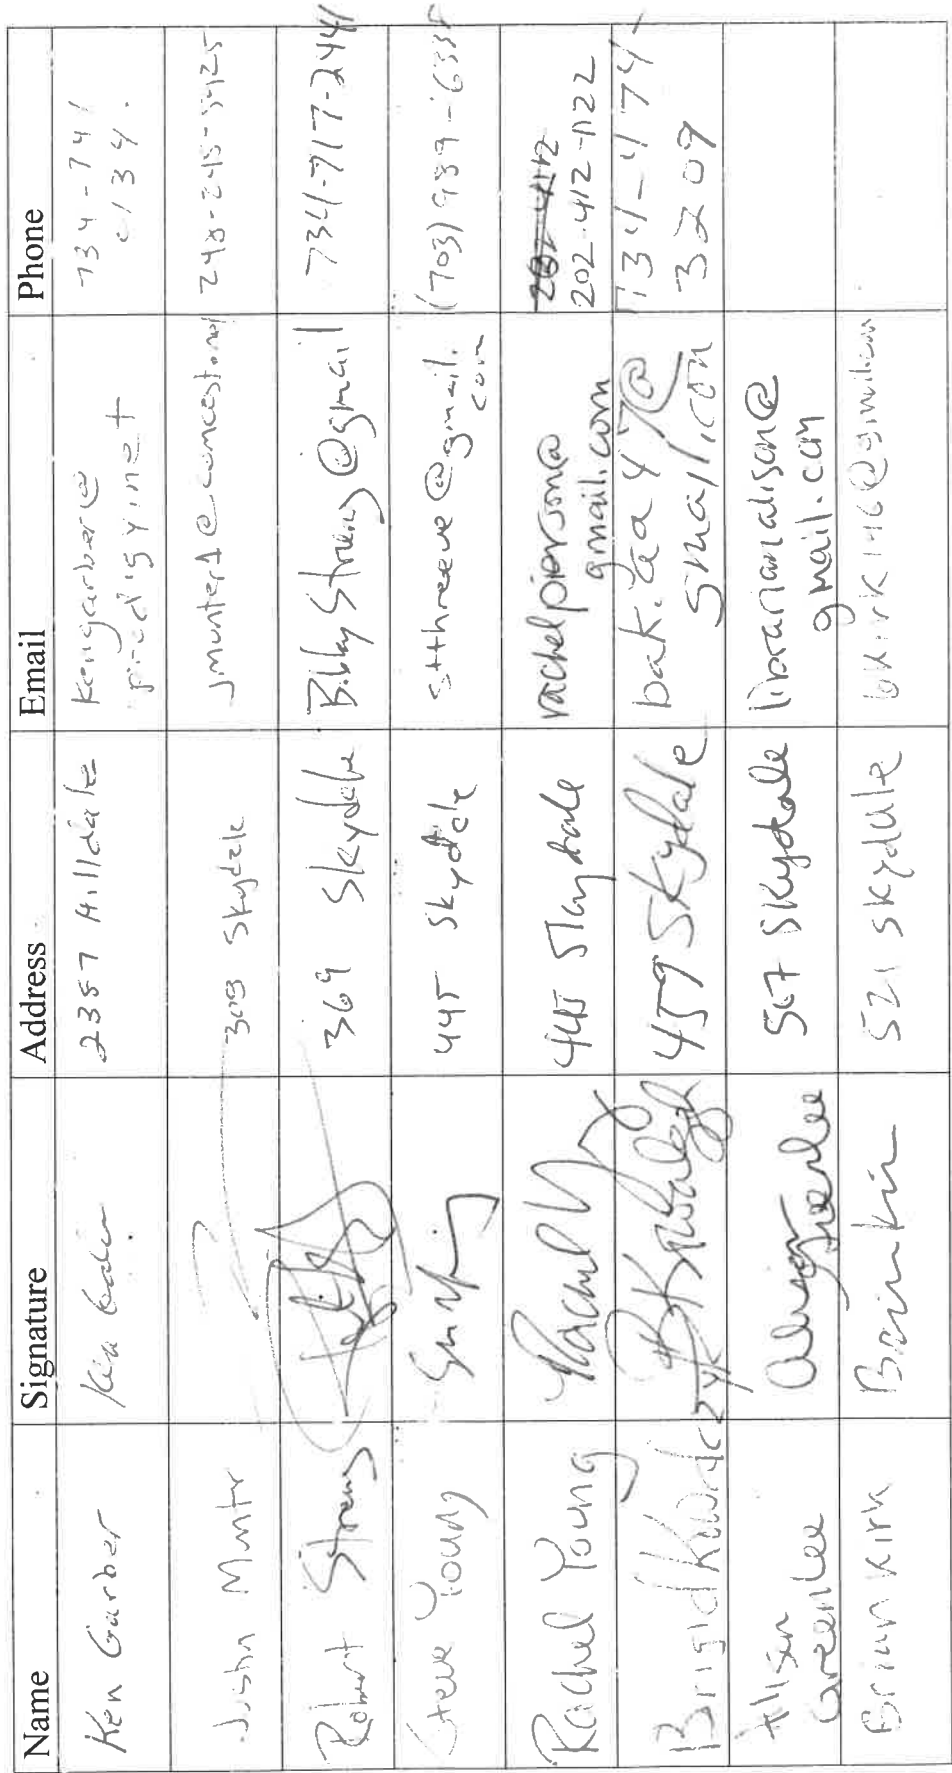 Name Signature Address Email Phone
Ken Garber 2387 Hilldale kengarber@
prodigy.net 734-741
6134
Justin Munter 309 Skydale jmunter1@comcast.net 248-245-5425
Robert 369 Skydale @gmail 734-717-2441
Steve Young 445 Skydale stthreeve@gmail.
com (703) 989-
Rachel Young Rachel 445 Skydale rachelpierson@
gmail.com 202-412
202-412-1122
Brigid 459 Skydale @
gmail.com 734-474-
3209
Alison
Greenlee Alison
Greenlee 567 Skydale librarianalison@
gmail.com
Brian Kirk 521 Skydale bkirk146@gmail.com